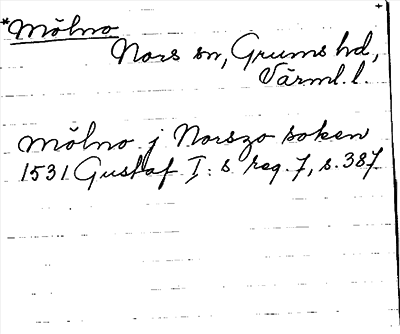 *Mölno
Nors sn, Grums hd,
Värml. l.
Mölno j Norszo soken
1531 Gustaf I:s reg. 7, s. 387